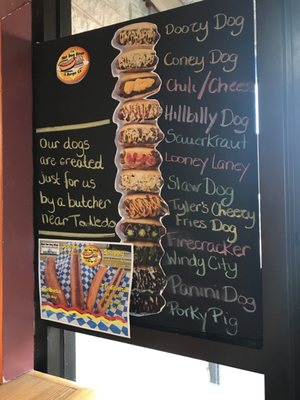 Doozy Dog
Coney Dog
Chili/Cheese
Hillbilly Dog
Sauerkraut
Looney Laney
Slaw Dog
Tyler's Cheezy
Fries Dog
Firecracker
Windy City
Panini Dog
Porky Pig
Our dogs
are created
just for us
by a butcher
near Toledo